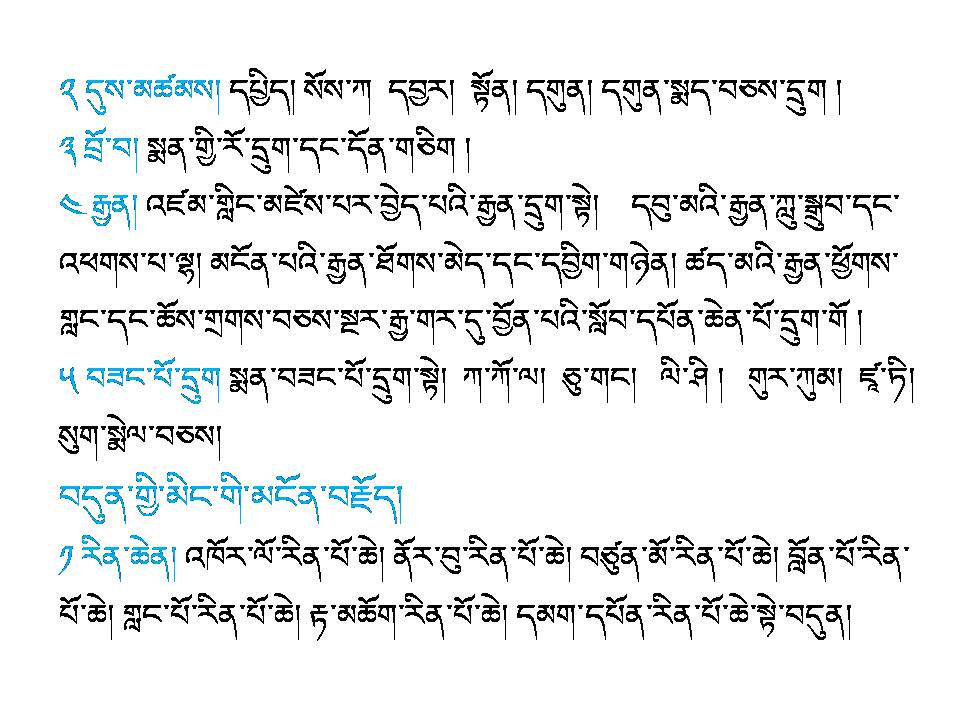 ༢ དུས་མཚམས། དཔྱིད། སོས་ཀ  དབྱར།  སྟོན། དགུན། དགུན་སྨད་བཅས་དྲུག །
༣ བྲོ་བ། སྨན་གྱི་རོ་དྲུག་དང་དོན་གཅིག །
༤ རྒྱན། འཛམ་གླིང་མཛེས་པར་བྱེད་པའི་རྒྱན་དྲུག་སྟེ།    དབུ་མའི་རྒྱན་ཀླུ་སྒྲུབ་དང་
འཕགས་པ་ལྷ། མངོན་པའི་རྒྱན་ཐོགས་མེད་དང་དབྱིག་གཉེན། ཚད་མའི་རྒྱན་ཕྱོགས་
གླང་དང་ཆོས་གྲགས་བཅས་སྔར་རྒྱ་གར་དུ་བྱོན་པའི་སློབ་དཔོན་ཆེན་པོ་དྲུག་གོ །
༥ བཟང་པོ་དྲུག སྨན་བཟང་པོ་དྲུག་སྟེ།  ཀ་ཀོ་ལ།  ཅུ་གང།   ལི་ཤི །   གུར་ཀུམ།  ཛཱ་ཏི།
སུག་སྨེལ་བཅས།
བདུན་གྱི་མིང་གི་མངོན་བརྗོད།
༡ རིན་ཆེན། འཁོར་ལོ་རིན་པོ་ཆེ། ནོར་བུ་རིན་པོ་ཆེ། བཙུན་མོ་རིན་པོ་ཆེ། བློན་པོ་རིན་
པོ་ཆེ། གླང་པོ་རིན་པོ་ཆེ། རྟ་མཆོག་རིན་པོ་ཆེ། དམག་དཔོན་རིན་པོ་ཆེ་སྟེ་བདུན།